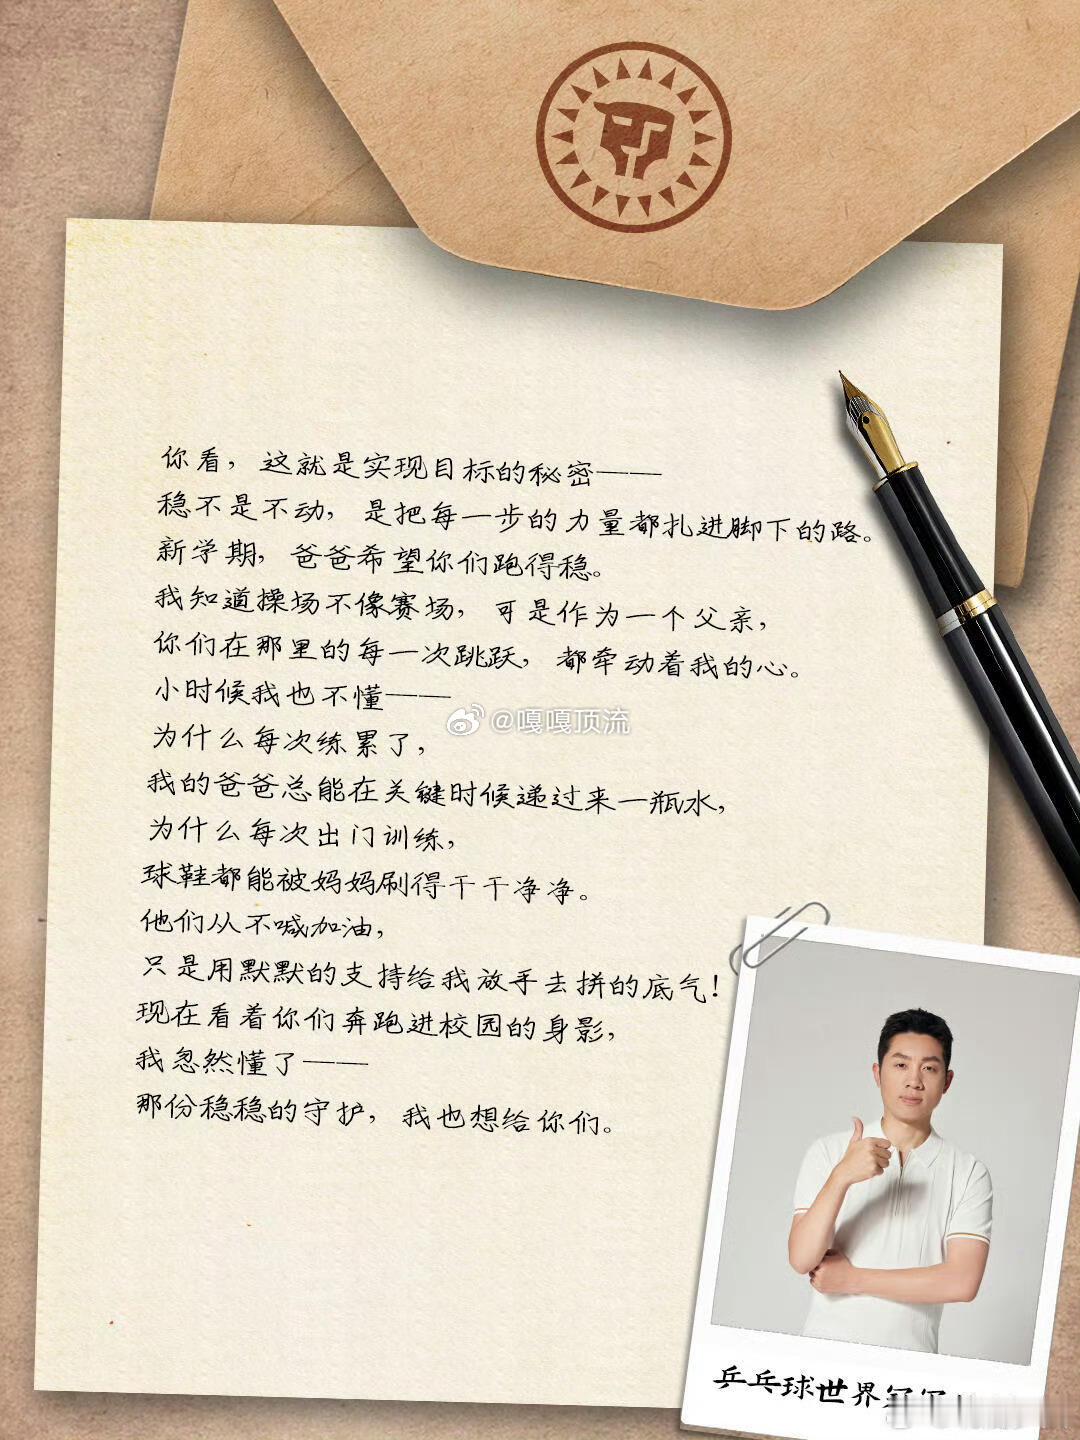 你看，这就是实现目标的秘密——
稳不是不动，是把每一步的力量都扎进脚下的路。
新学期，爸爸希望你们跑得稳。
我知道操场不像赛场，可是作为一个父亲，
你们在那里的每一次跳跃，都牵动着我的心。
小时候我也不懂——
@嘎嘎顶流
为什么每次练累了，
我的爸爸总能在关键时候递过来一瓶水，
为什么每次出门训练，
球鞋都能被妈妈刷得干干净净。
他们从不喊加油，
只是用默默的支持给我放手去拼的底气！
现在看着你们奔跑进校园的身影，
我忽然懂了——
那份稳稳的守护，我也想给你们。
乒乓球世界冠军